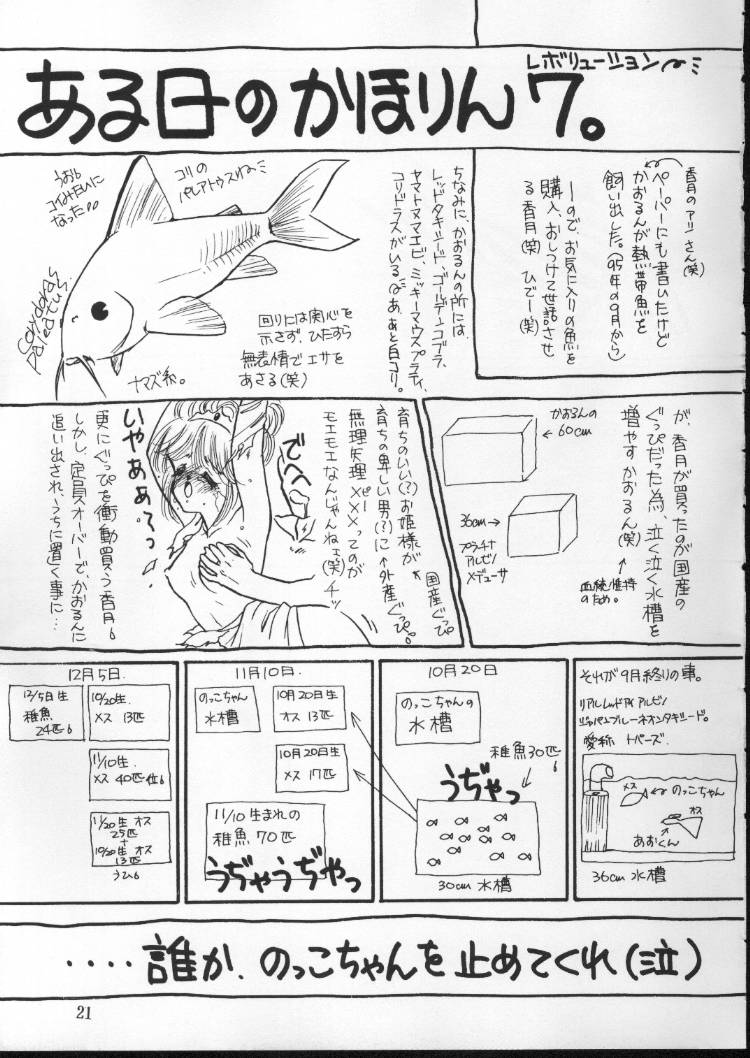 レボリューション
ある日のかほりん7。
香月のアリさん(笑)
ペーパーにも書いたけど
かおるんが熱帯魚を
飼い出した。('95年の9月から)
ーので、お気に入りの魚を
購入、おしつけて世話させ
る香月(笑) ひでー(笑)
ちなみに、かおるんの所には、
レッドタキシード、ゴールデンコブラ、
ヤマトヌマエビ、ミッキーマウスプラティ、
コリドラスがいる。あ、あと白コリ。
コリの
パレアトウスね
うおぉ
コイみたいに
なった。
Coridoras
Paleatus.
ナマズ系。
回りには関心を
示さず、ひたすら
無表情でエサを
あさる(笑)
が、香月が買ったのが国産の
ぐっぴだった為、泣く泣く水槽を
増やすかおるん(笑)
血統維持
のため。
かおるんの
60cm
36cm
プラチナ
アルビノ
メデューサ
国産ぐっぴ
育ちのいい(?)お姫様が
育ちの卑しい男(?)に
外産ぐっぴ。
無理矢理×××ってのが
ピー
モエモエなんじゃんねェ(笑)チッ
でへへ
いやああぁっ
更にぐっぴを衝動買う香月。
しかし、定員オーバーで、かおるんに
追い出され、うちに置く事に…
それが9月終りの事。
リアルレッドアイアルビノ
ジャパンブルーネオンタキシード。
愛称 トパーズ。
メス
のっこちゃん
オス
あおくん
36cm 水槽
10月20日
のっこちゃんの
水槽
稚魚30匹
うぢゃっ
30cm 水槽
11月10日.
のっこちゃん
水槽
10月20日生
オス 13匹
10月20日生
メス 17匹
11/10 生まれの
稚魚 70匹
うぢゃうぢゃっ
12月5日.
12/5日生
稚魚
24匹
10/20生.
メス 13匹
11/10生.
メス 40匹位
11/20生 オス
25匹
+
10/20生 オス
13匹
うひ
‥‥誰か、のっこちゃんを止めてくれ(泣)
21